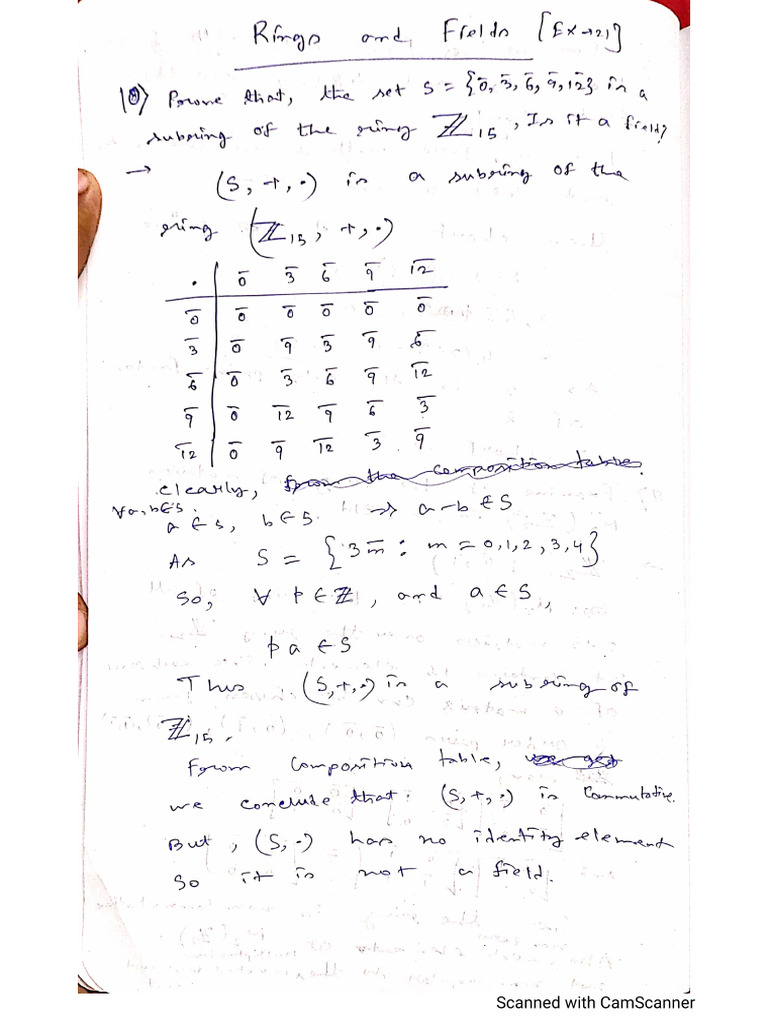 Rings and Fields [Ex→21]
10) Prove that, the set S = {0̄, 3̄, 6̄, 9̄, 1̄2̄} is a
subring of the ring ℤ₁₅, Is it a field?
→ (S, +, ·) is a subring of the
ring (ℤ₁₅, +, ·)
· | 0̄ 3̄ 6̄ 9̄ 1̄2̄
0̄ | 0̄ 0̄ 0̄ 0̄ 0̄
3̄ | 0̄ 9̄ 3̄ 9̄ 6̄
6̄ | 0̄ 3̄ 6̄ 9̄ 1̄2̄
9̄ | 0̄ 1̄2̄ 9̄ 6̄ 3̄
1̄2̄ | 0̄ 9̄ 1̄2̄ 3̄ 9̄
Clearly, from the composition table.
∀a,b∈S.
a ∈ S, b ∈ S ⇒ a-b ∈ S
As S = {3m̄ : m = 0,1,2,3,4}
So, ∀ p ∈ ℤ, and a ∈ S,
pa ∈ S
Thus (S,+,·) is a subring of
ℤ₁₅.
From Composition table,
we conclude that (S,+,·) is Commutative.
But, (S, ·) has no identity element
So it is not a field.
Scanned with CamScanner